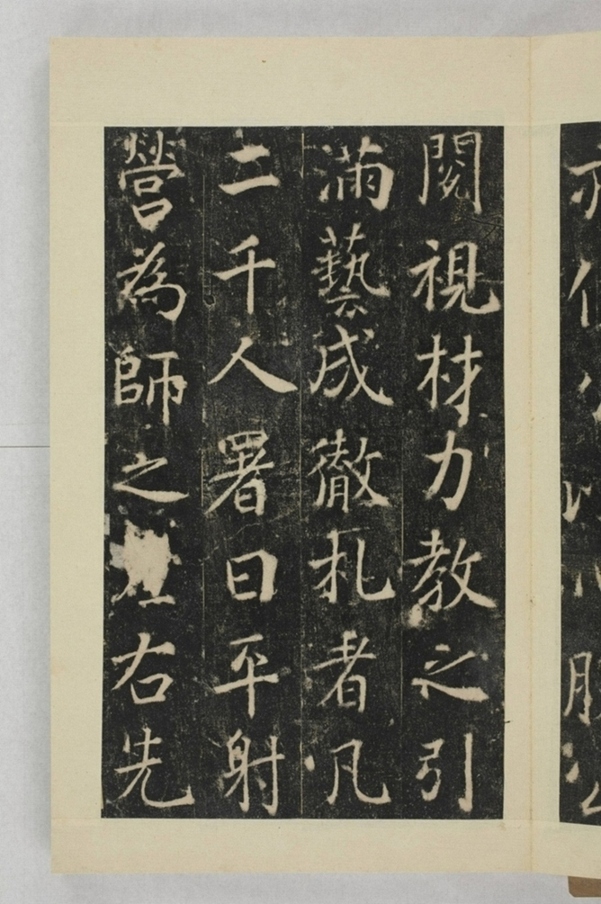 閱視材力教之引
滿藝成徹札者凡
二千人署曰平射
營為師之左右先